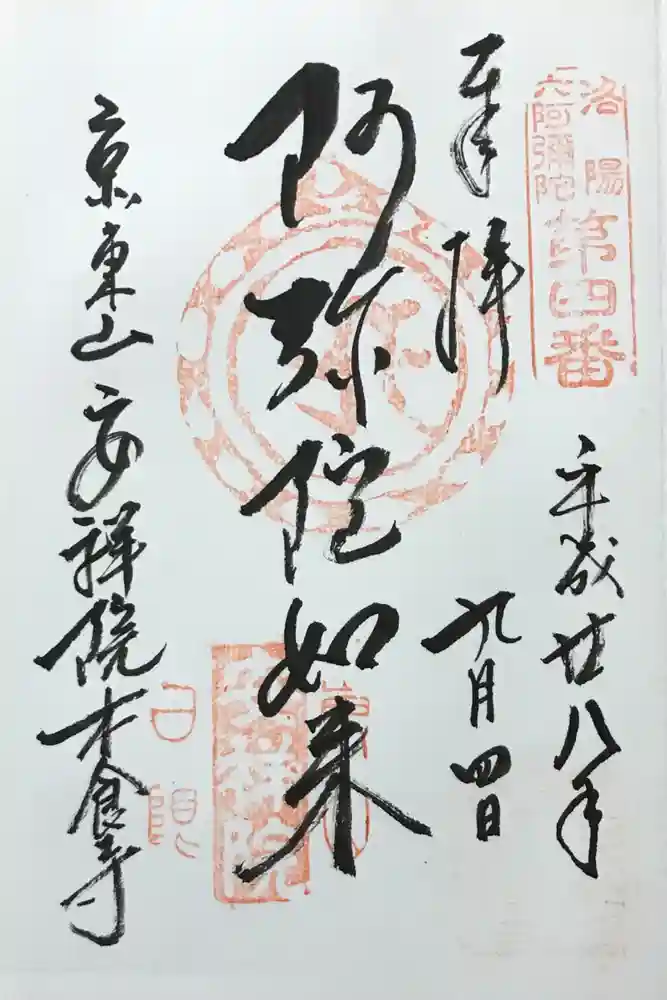 洛陽
六阿彌陀
第四番
奉拝
平成廿八年
九月四日
阿弥陀如来
安祥院
京東山安祥院木食寺